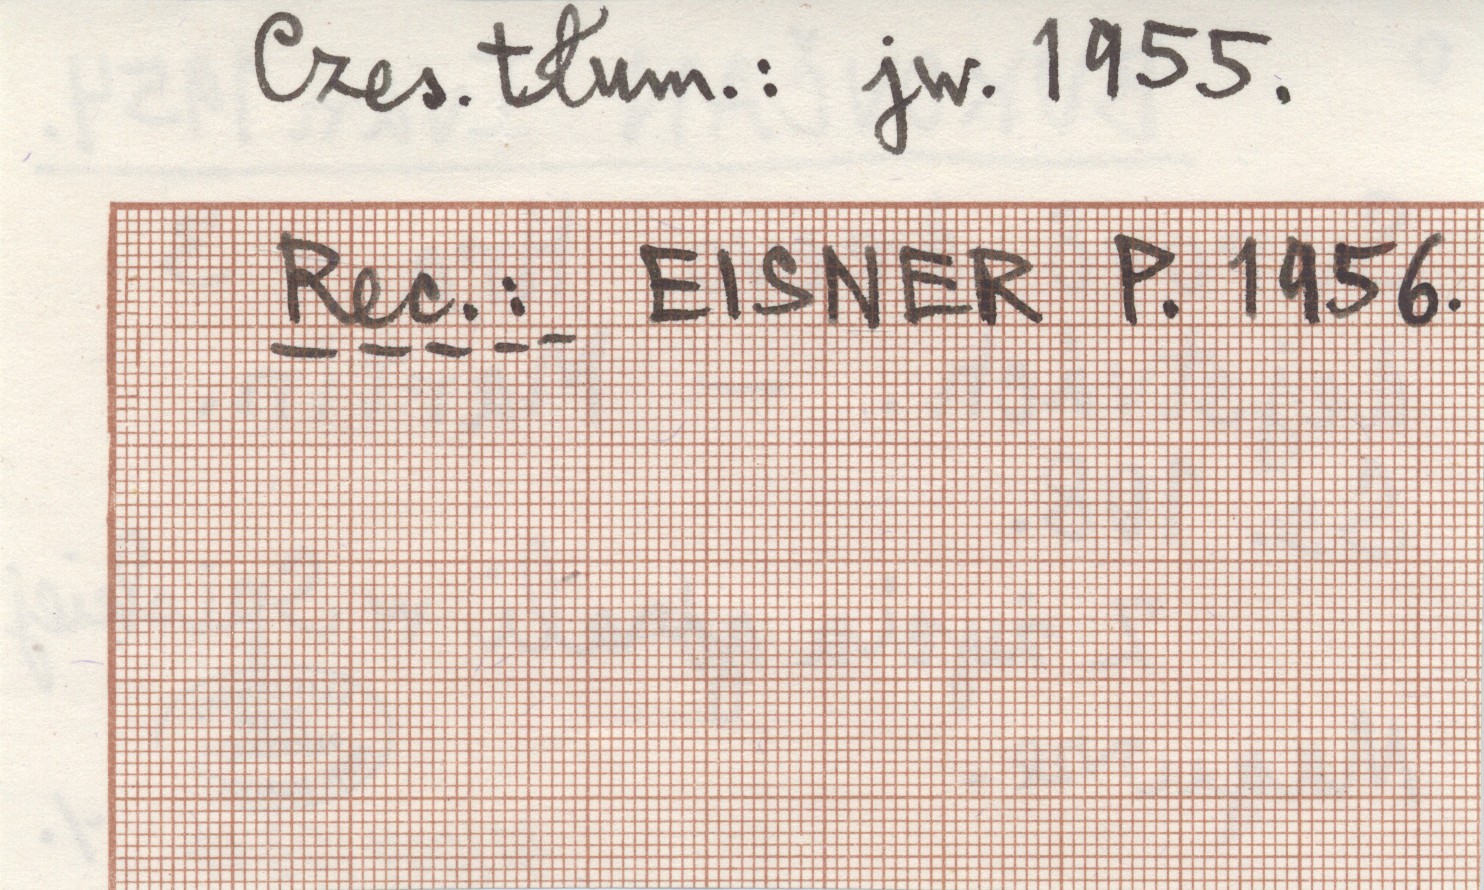 Czes. tłum.: jw. 1955.
Rec.: EISNER P. 1956.